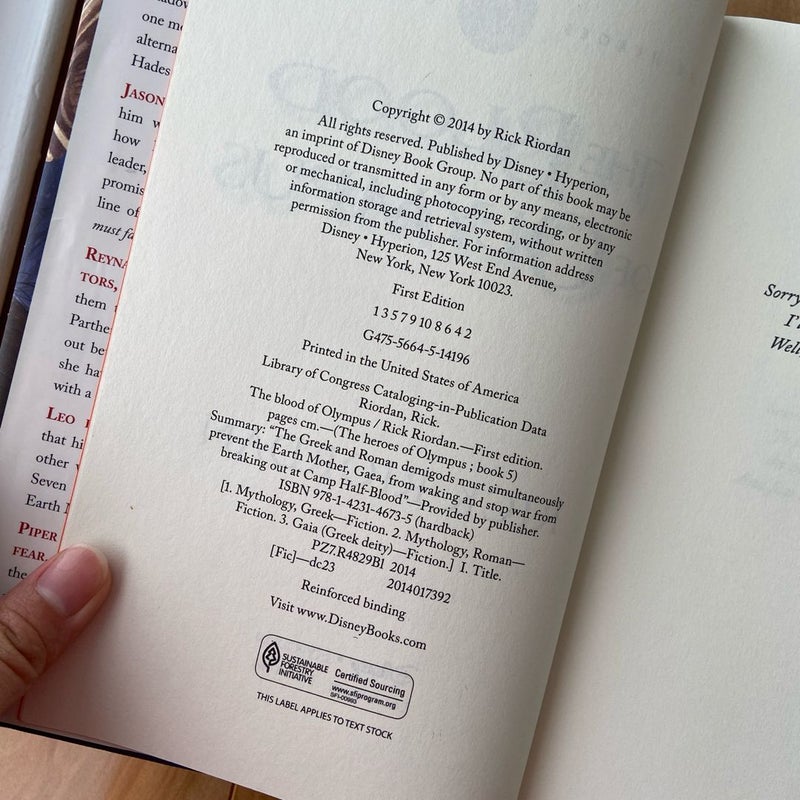 one m
alterna
Hades
JASON
him w
how
leader,
promis
line of
must fa
REYNA
TORS,
them
Parthe
out be
she ha
with a
LEO
that hi
other
Seven
Earth
PIPER
FEAR.
the
Copyright © 2014 by Rick Riordan
All rights reserved. Published by Disney • Hyperion,
an imprint of Disney Book Group. No part of this book may be
reproduced or transmitted in any form or by any means, electronic
or mechanical, including photocopying, recording, or by any
information storage and retrieval system, without written
permission from the publisher. For information address
Disney • Hyperion, 125 West End Avenue,
New York, New York 10023.
First Edition
1 3 5 7 9 10 8 6 4 2
G475-5664-5-14196
Printed in the United States of America
Library of Congress Cataloging-in-Publication Data
Riordan, Rick.
The blood of Olympus / Rick Riordan.—First edition.
pages cm.—(The heroes of Olympus ; book 5)
Summary: "The Greek and Roman demigods must simultaneously
prevent the Earth Mother, Gaea, from waking and stop war from
breaking out at Camp Half-Blood"—Provided by publisher.
ISBN 978-1-4231-4673-5 (hardback)
[1. Mythology, Greek—Fiction. 2. Mythology, Roman—
Fiction. 3. Gaia (Greek deity)—Fiction.] I. Title.
PZ7.R4829Bl 2014
[Fic]—dc23 2014017392
Reinforced binding
Visit www.DisneyBooks.com
SUSTAINABLE
FORESTRY
INITIATIVE
Certified Sourcing
www.sfiprogram.org
SFI-00993
THIS LABEL APPLIES TO TEXT STOCK
Sorry
I'
Well